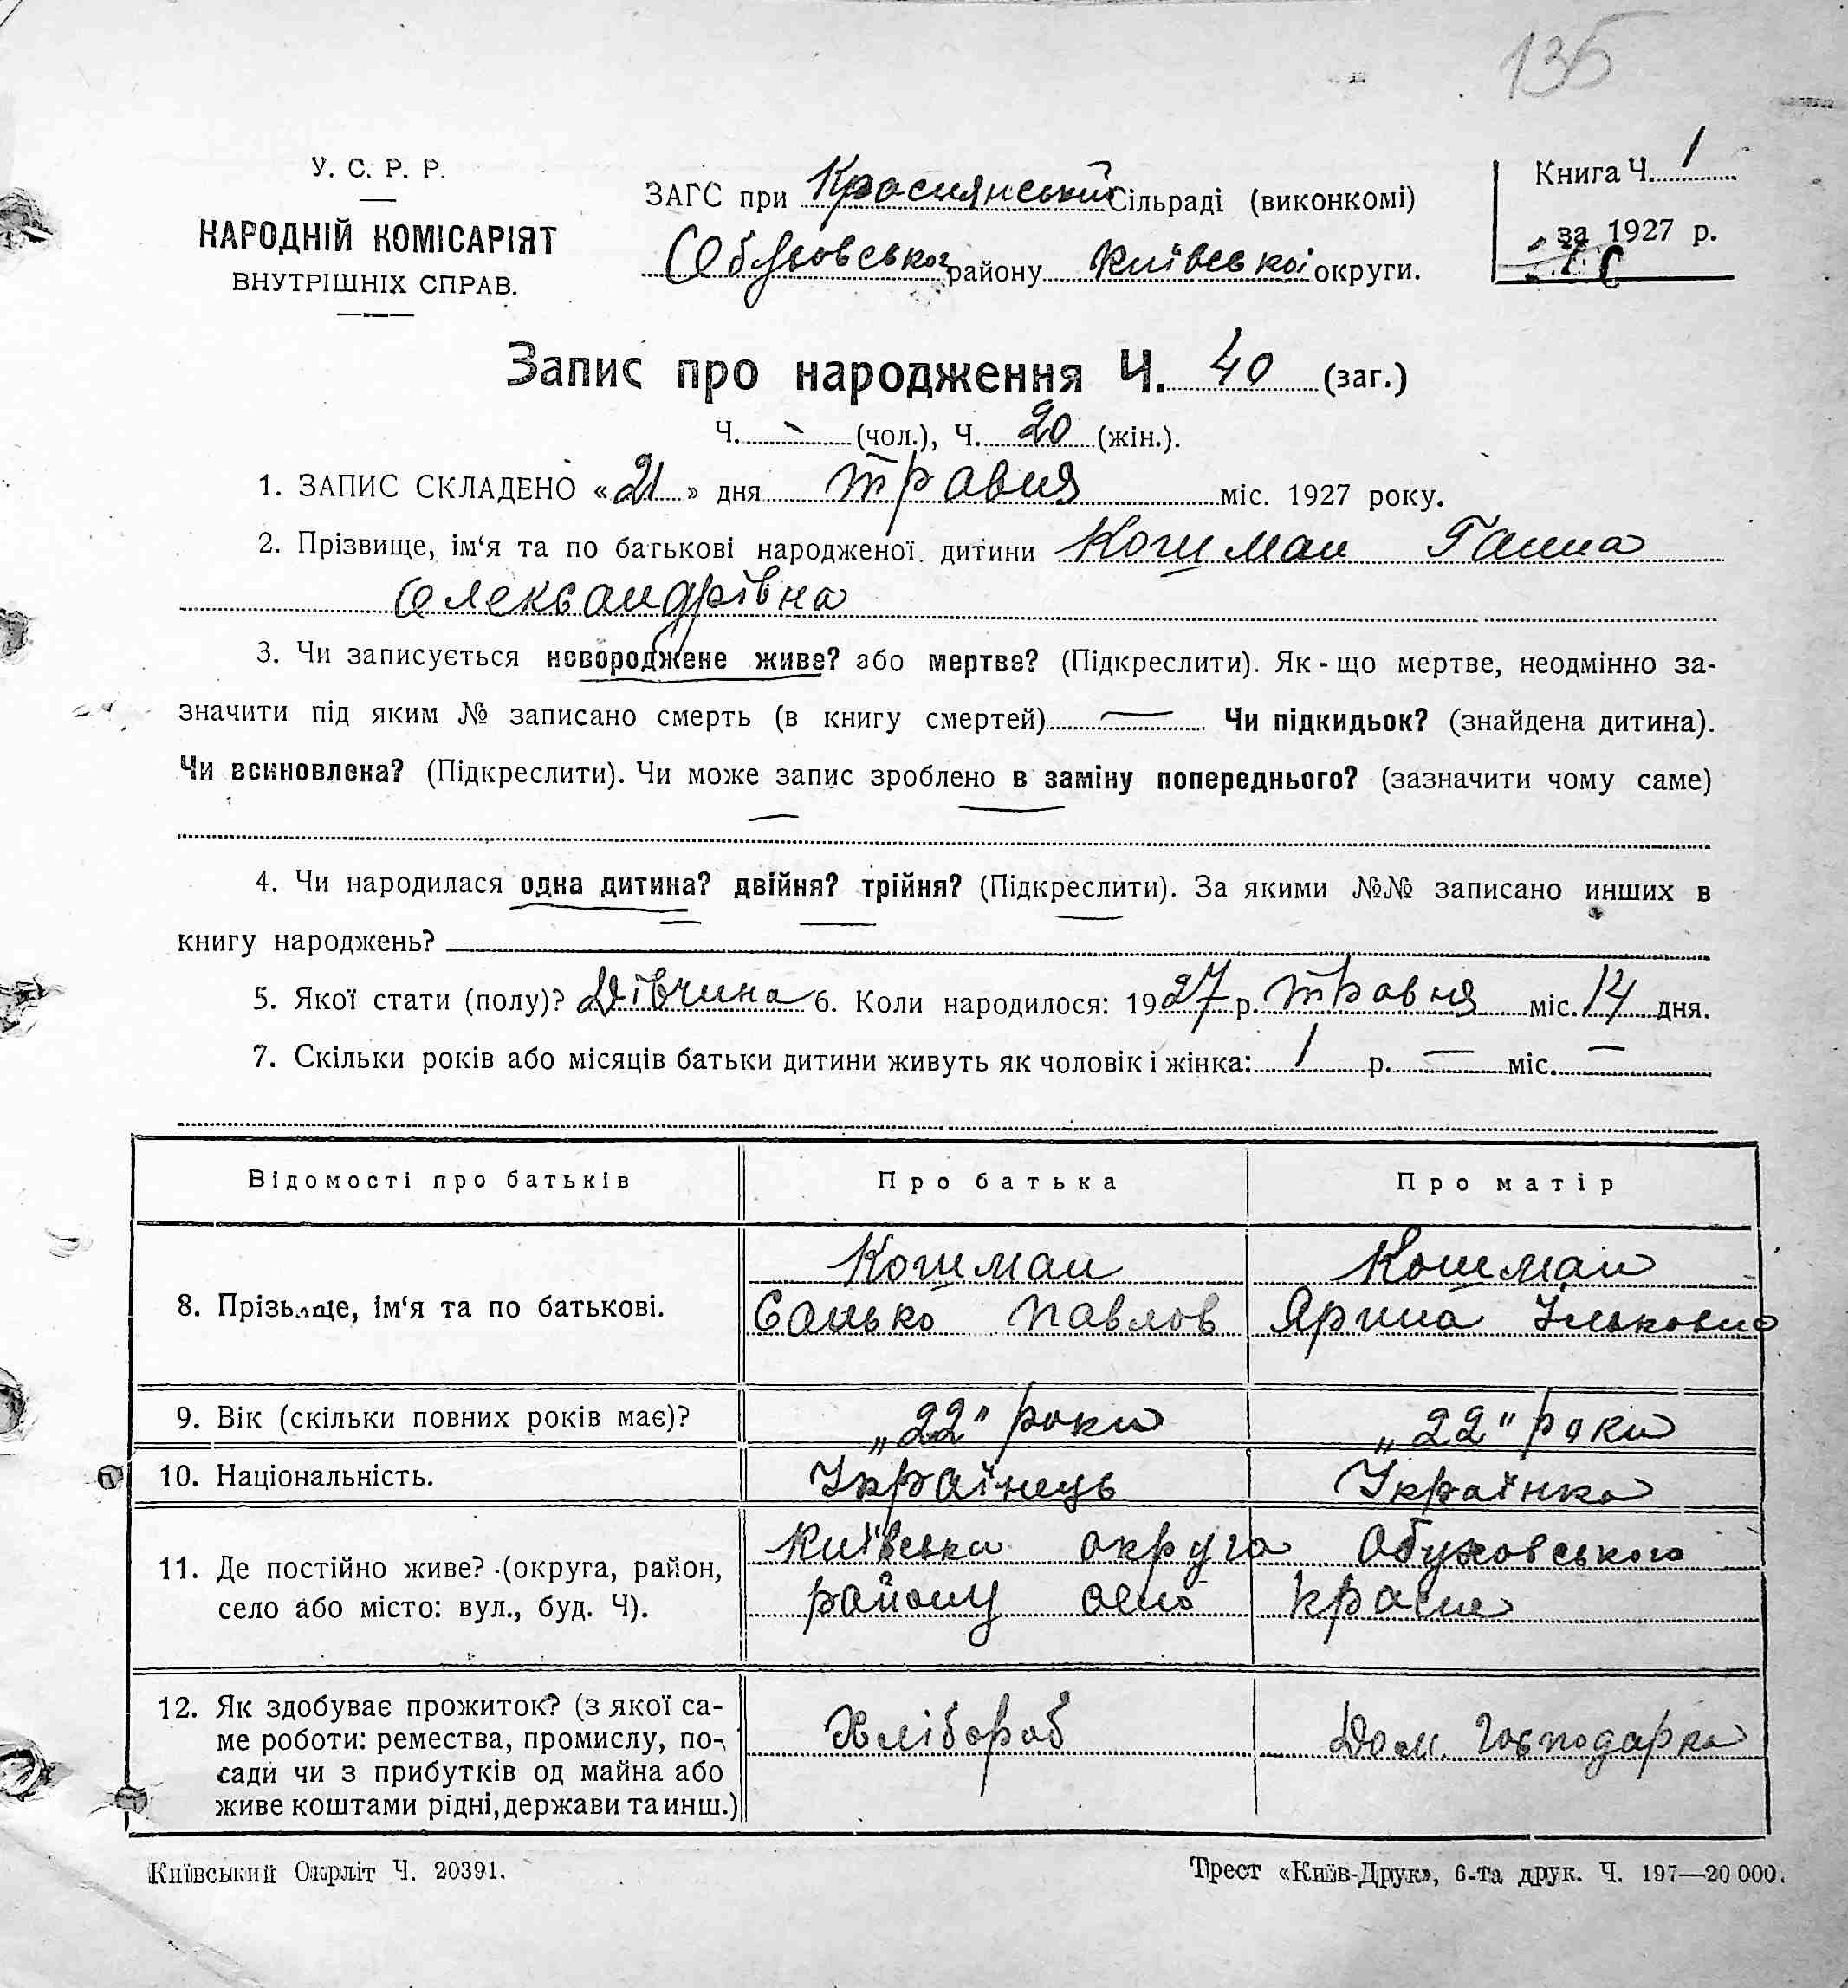 136
У. С. Р. Р.
НАРОДНІЙ КОМІСАРІЯТ
ВНУТРІШНІХ СПРАВ.
ЗАГС при Краснянській Сільраді (виконкомі)
Обуховського району Київської округи.
Книга Ч. 1
за 1927 р.
Запис про народження Ч. 40 (заг.)
Ч. - (чол.), Ч. 20 (жін.).
1. ЗАПИС СКЛАДЕНО «21» дня травня міс. 1927 року.
2. Прізвище, ім‘я та по батькові народженої дитини Кошман Ганна
Олександрівна
3. Чи записується новороджене живе? або мертве? (Підкреслити). Як-що мертве, неодмінно за-
значити під яким № записано смерть (в книгу смертей) — Чи підкидьок? (знайдена дитина).
Чи всиновлена? (Підкреслити). Чи може запис зроблено в заміну попереднього? (зазначити чому саме)
4. Чи народилася одна дитина? двійня? трійня? (Підкреслити). За якими №№ записано инших в
книгу народжень?
5. Якої стати (полу)? Дівчина 6. Коли народилося: 1927 р. травня міс. 14 дня.
7. Скільки років або місяців батьки дитини живуть як чоловік і жінка: 1 р. — міс. —
Відомості про батьків Про батька Про матір
8. Прізвище, ім‘я та по батькові. Кошман Кошман
Санько Павлов Ярина Ільковна
9. Вік (скільки повних років має)? „22" роки „22" роки
10. Національність. Українець Українка
11. Де постійно живе? (округа, район, Київська округа Обуховського
село або місто: вул., буд. Ч). району село Красне
12. Як здобуває прожиток? (з якої са-
ме роботи: ремества, промислу, по- Хлібороб Дом. Господарка
сади чи з прибутків од майна або
живе коштами рідні, держави та инш.)
Київський Окрліт Ч. 20391.
Трест «Київ-Друк», 6-та друк. Ч. 197—20 000.